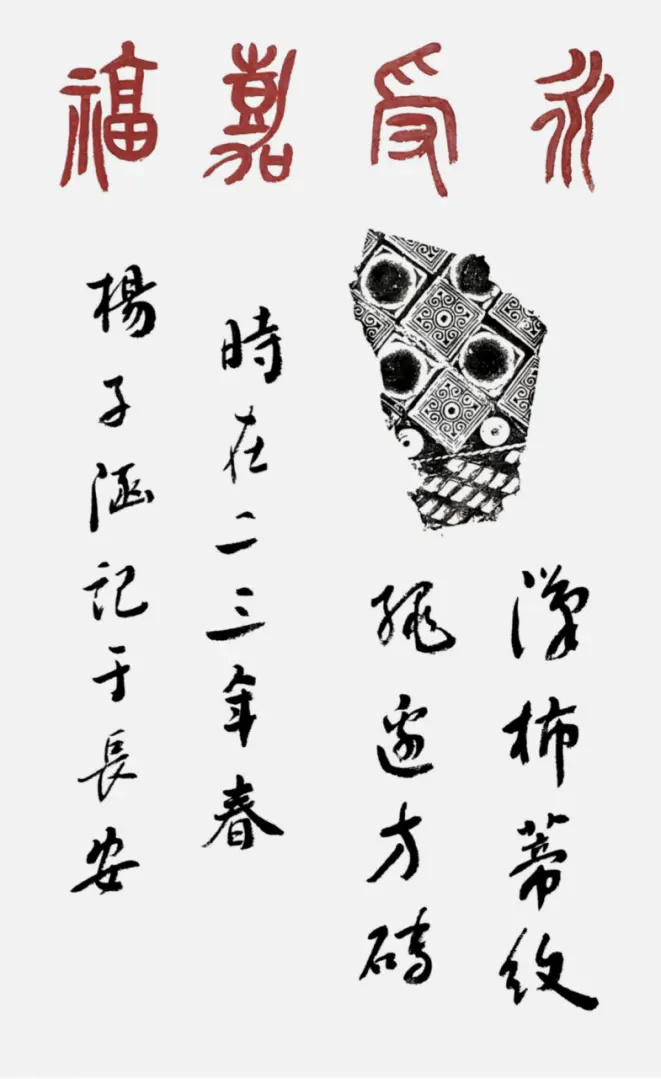 永受嘉福
漢柿蒂紋
繩邊方磚
時在二三年春
楊子涵記于長安